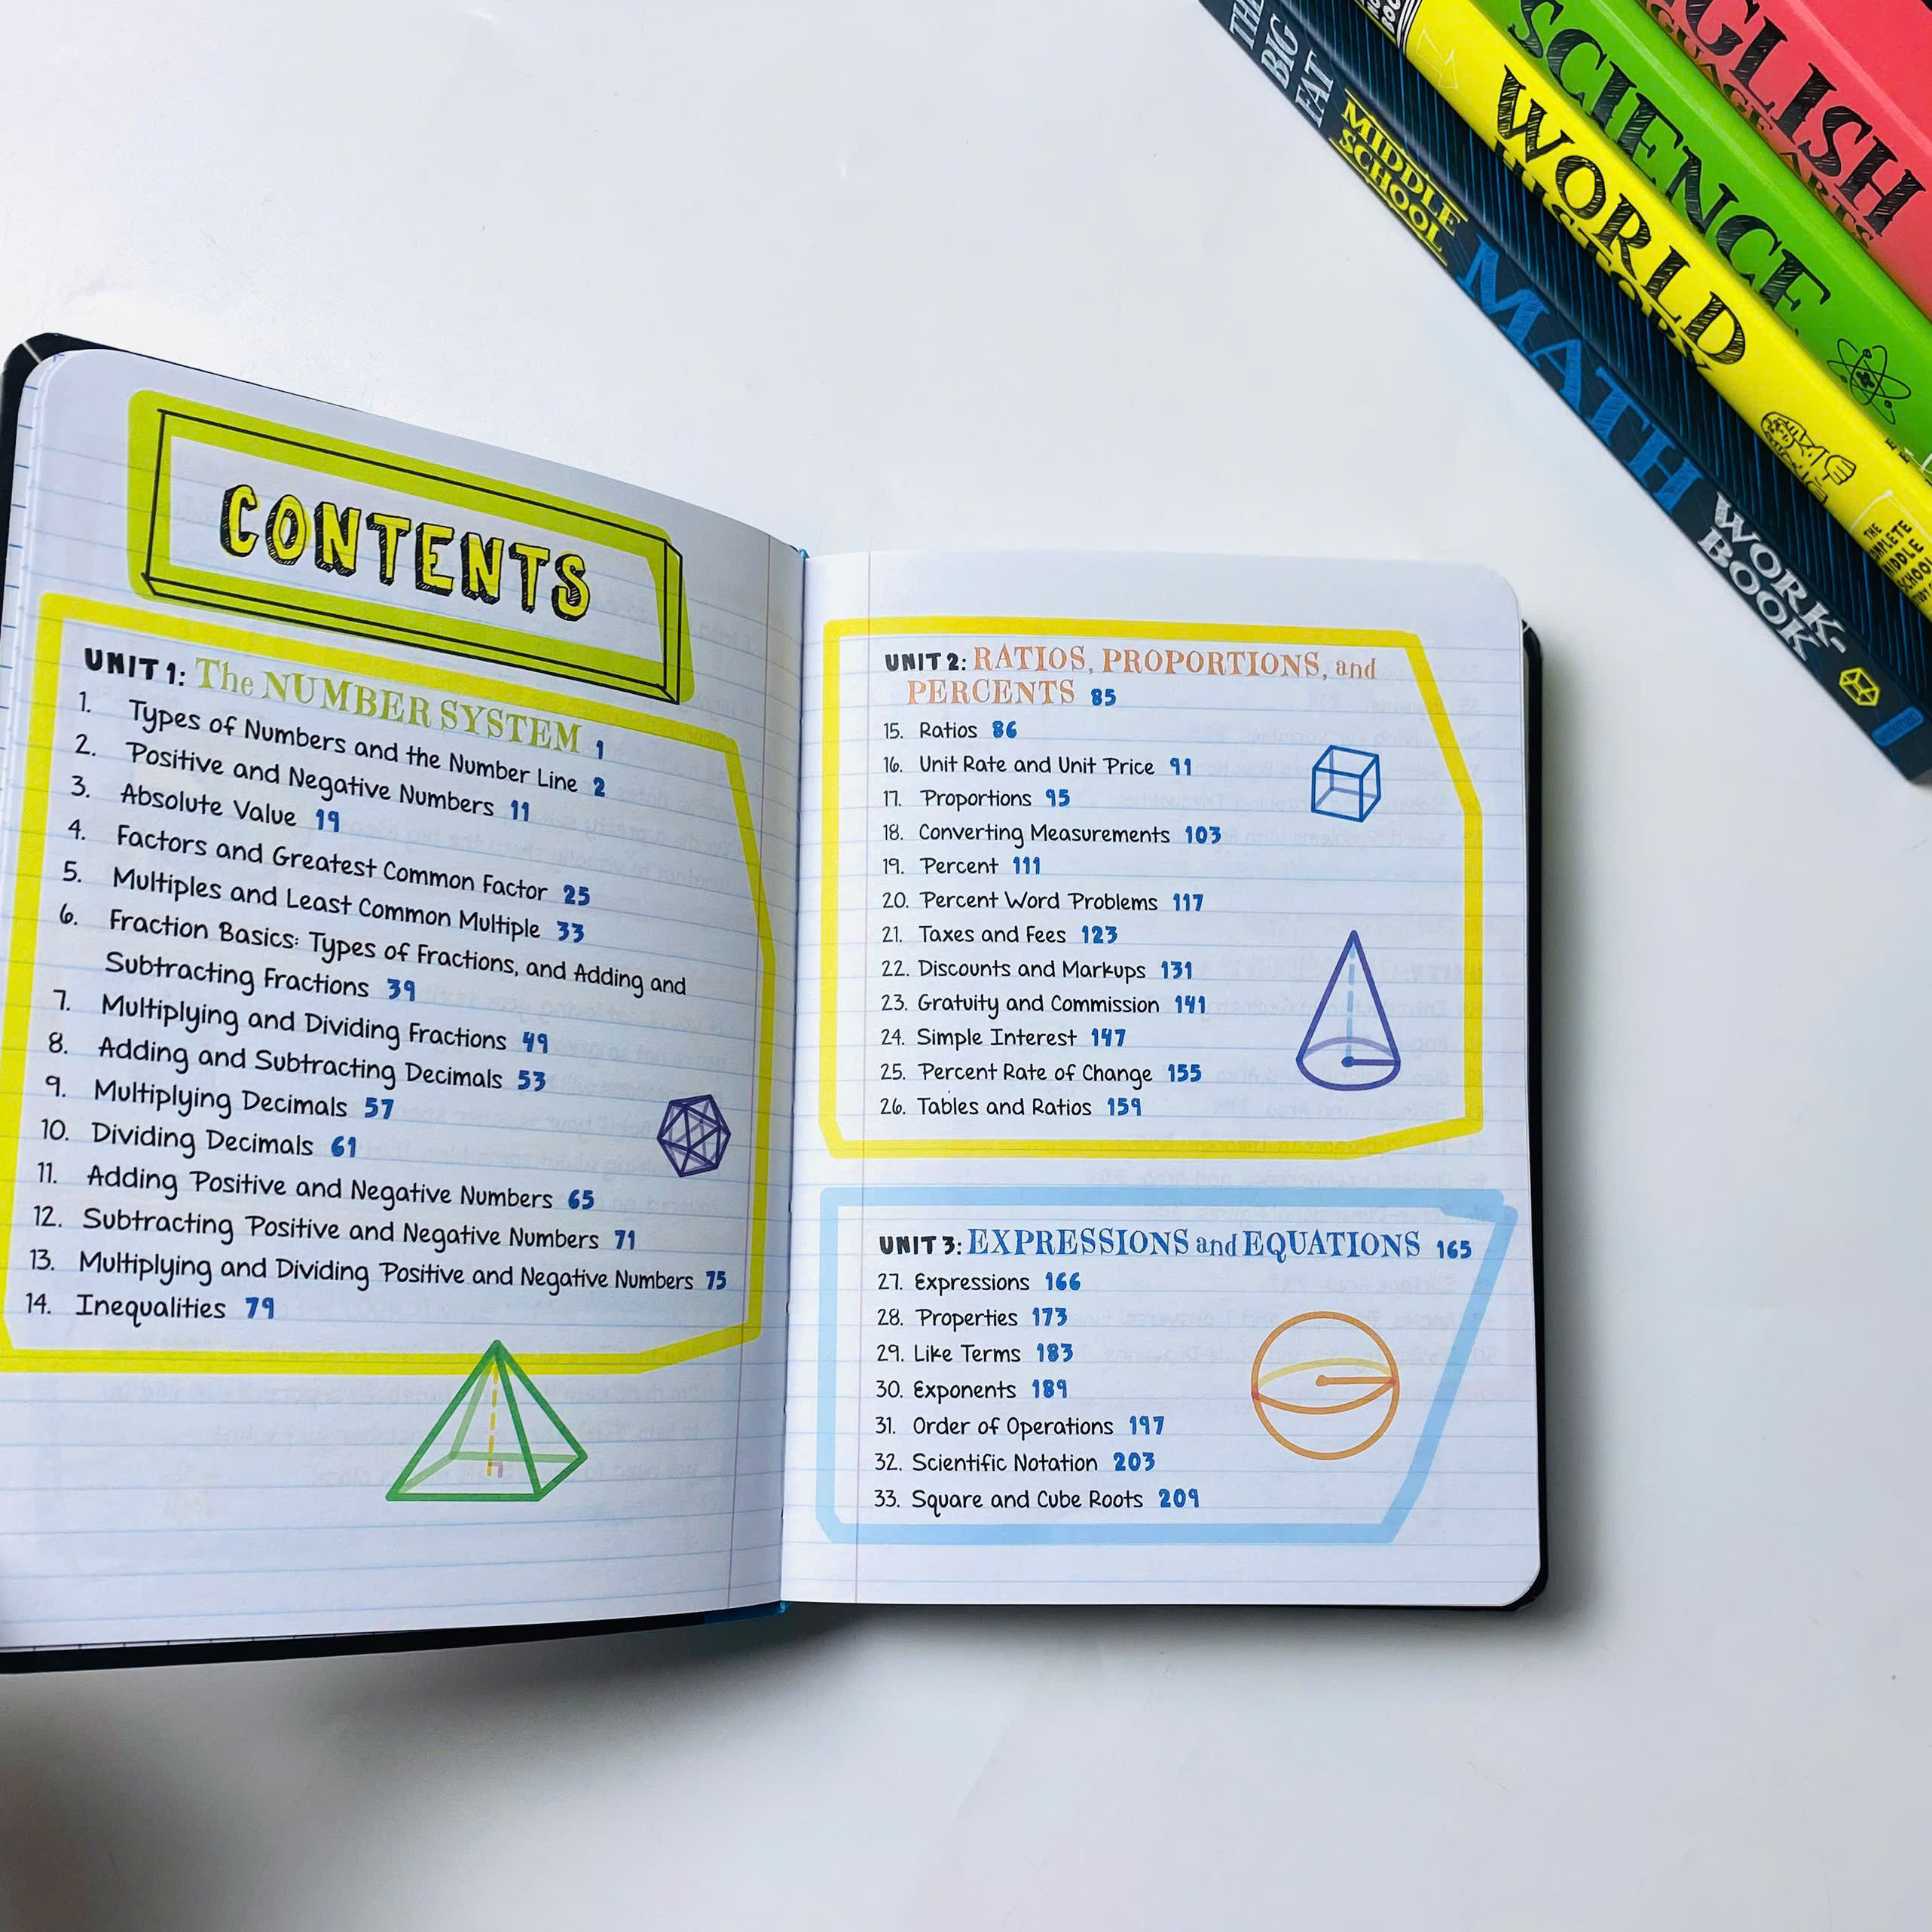 CONTENTS
UNIT 1: The NUMBER SYSTEM 1
1. Types of Numbers and the Number Line 2
2. Positive and Negative Numbers 11
3. Absolute Value 19
4. Factors and Greatest Common Factor 25
5. Multiples and Least Common Multiple 33
6. Fraction Basics: Types of Fractions, and Adding and
Subtracting Fractions 39
7. Multiplying and Dividing Fractions 49
8. Adding and Subtracting Decimals 53
9. Multiplying Decimals 57
10. Dividing Decimals 61
11. Adding Positive and Negative Numbers 65
12. Subtracting Positive and Negative Numbers 71
13. Multiplying and Dividing Positive and Negative Numbers 75
14. Inequalities 79
UNIT 2: RATIOS, PROPORTIONS, and
PERCENTS 85
15. Ratios 86
16. Unit Rate and Unit Price 91
17. Proportions 95
18. Converting Measurements 103
19. Percent 111
20. Percent Word Problems 117
21. Taxes and Fees 123
22. Discounts and Markups 131
23. Gratuity and Commission 141
24. Simple Interest 147
25. Percent Rate of Change 155
26. Tables and Ratios 159
UNIT 3: EXPRESSIONS and EQUATIONS 165
27. Expressions 166
28. Properties 173
29. Like Terms 183
30. Exponents 189
31. Order of Operations 197
32. Scientific Notation 203
33. Square and Cube Roots 209
THE
BIG
FAT
MIDDLE
SCHOOL
MATH
WORK-
BOOK
WORLD
HISTORY
THE
COMPLETE
MIDDLE
SCHOOL
SCIENCE
GLISH
GUAGE ARTS